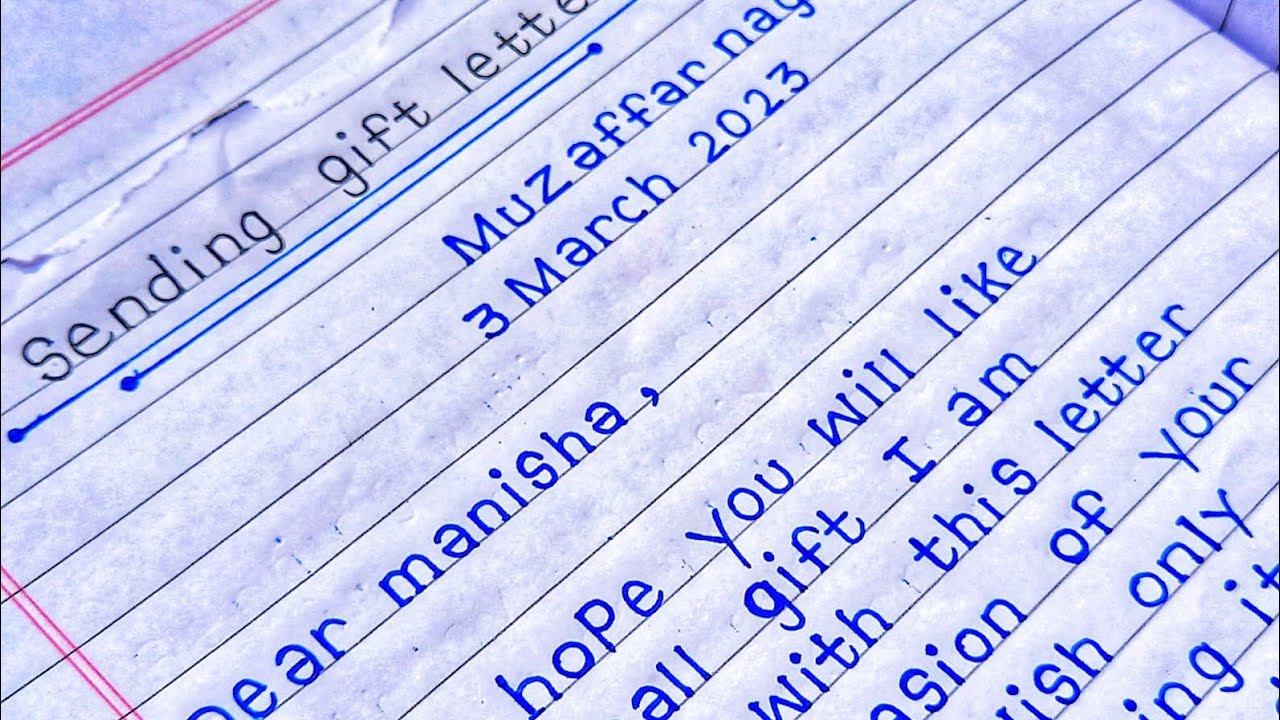 Sending gift lette
Muzaffarnag
3 March 2023
Dear manisha,
hope you will like
all gift I am
with this letter
asion of your
ish only
ing it